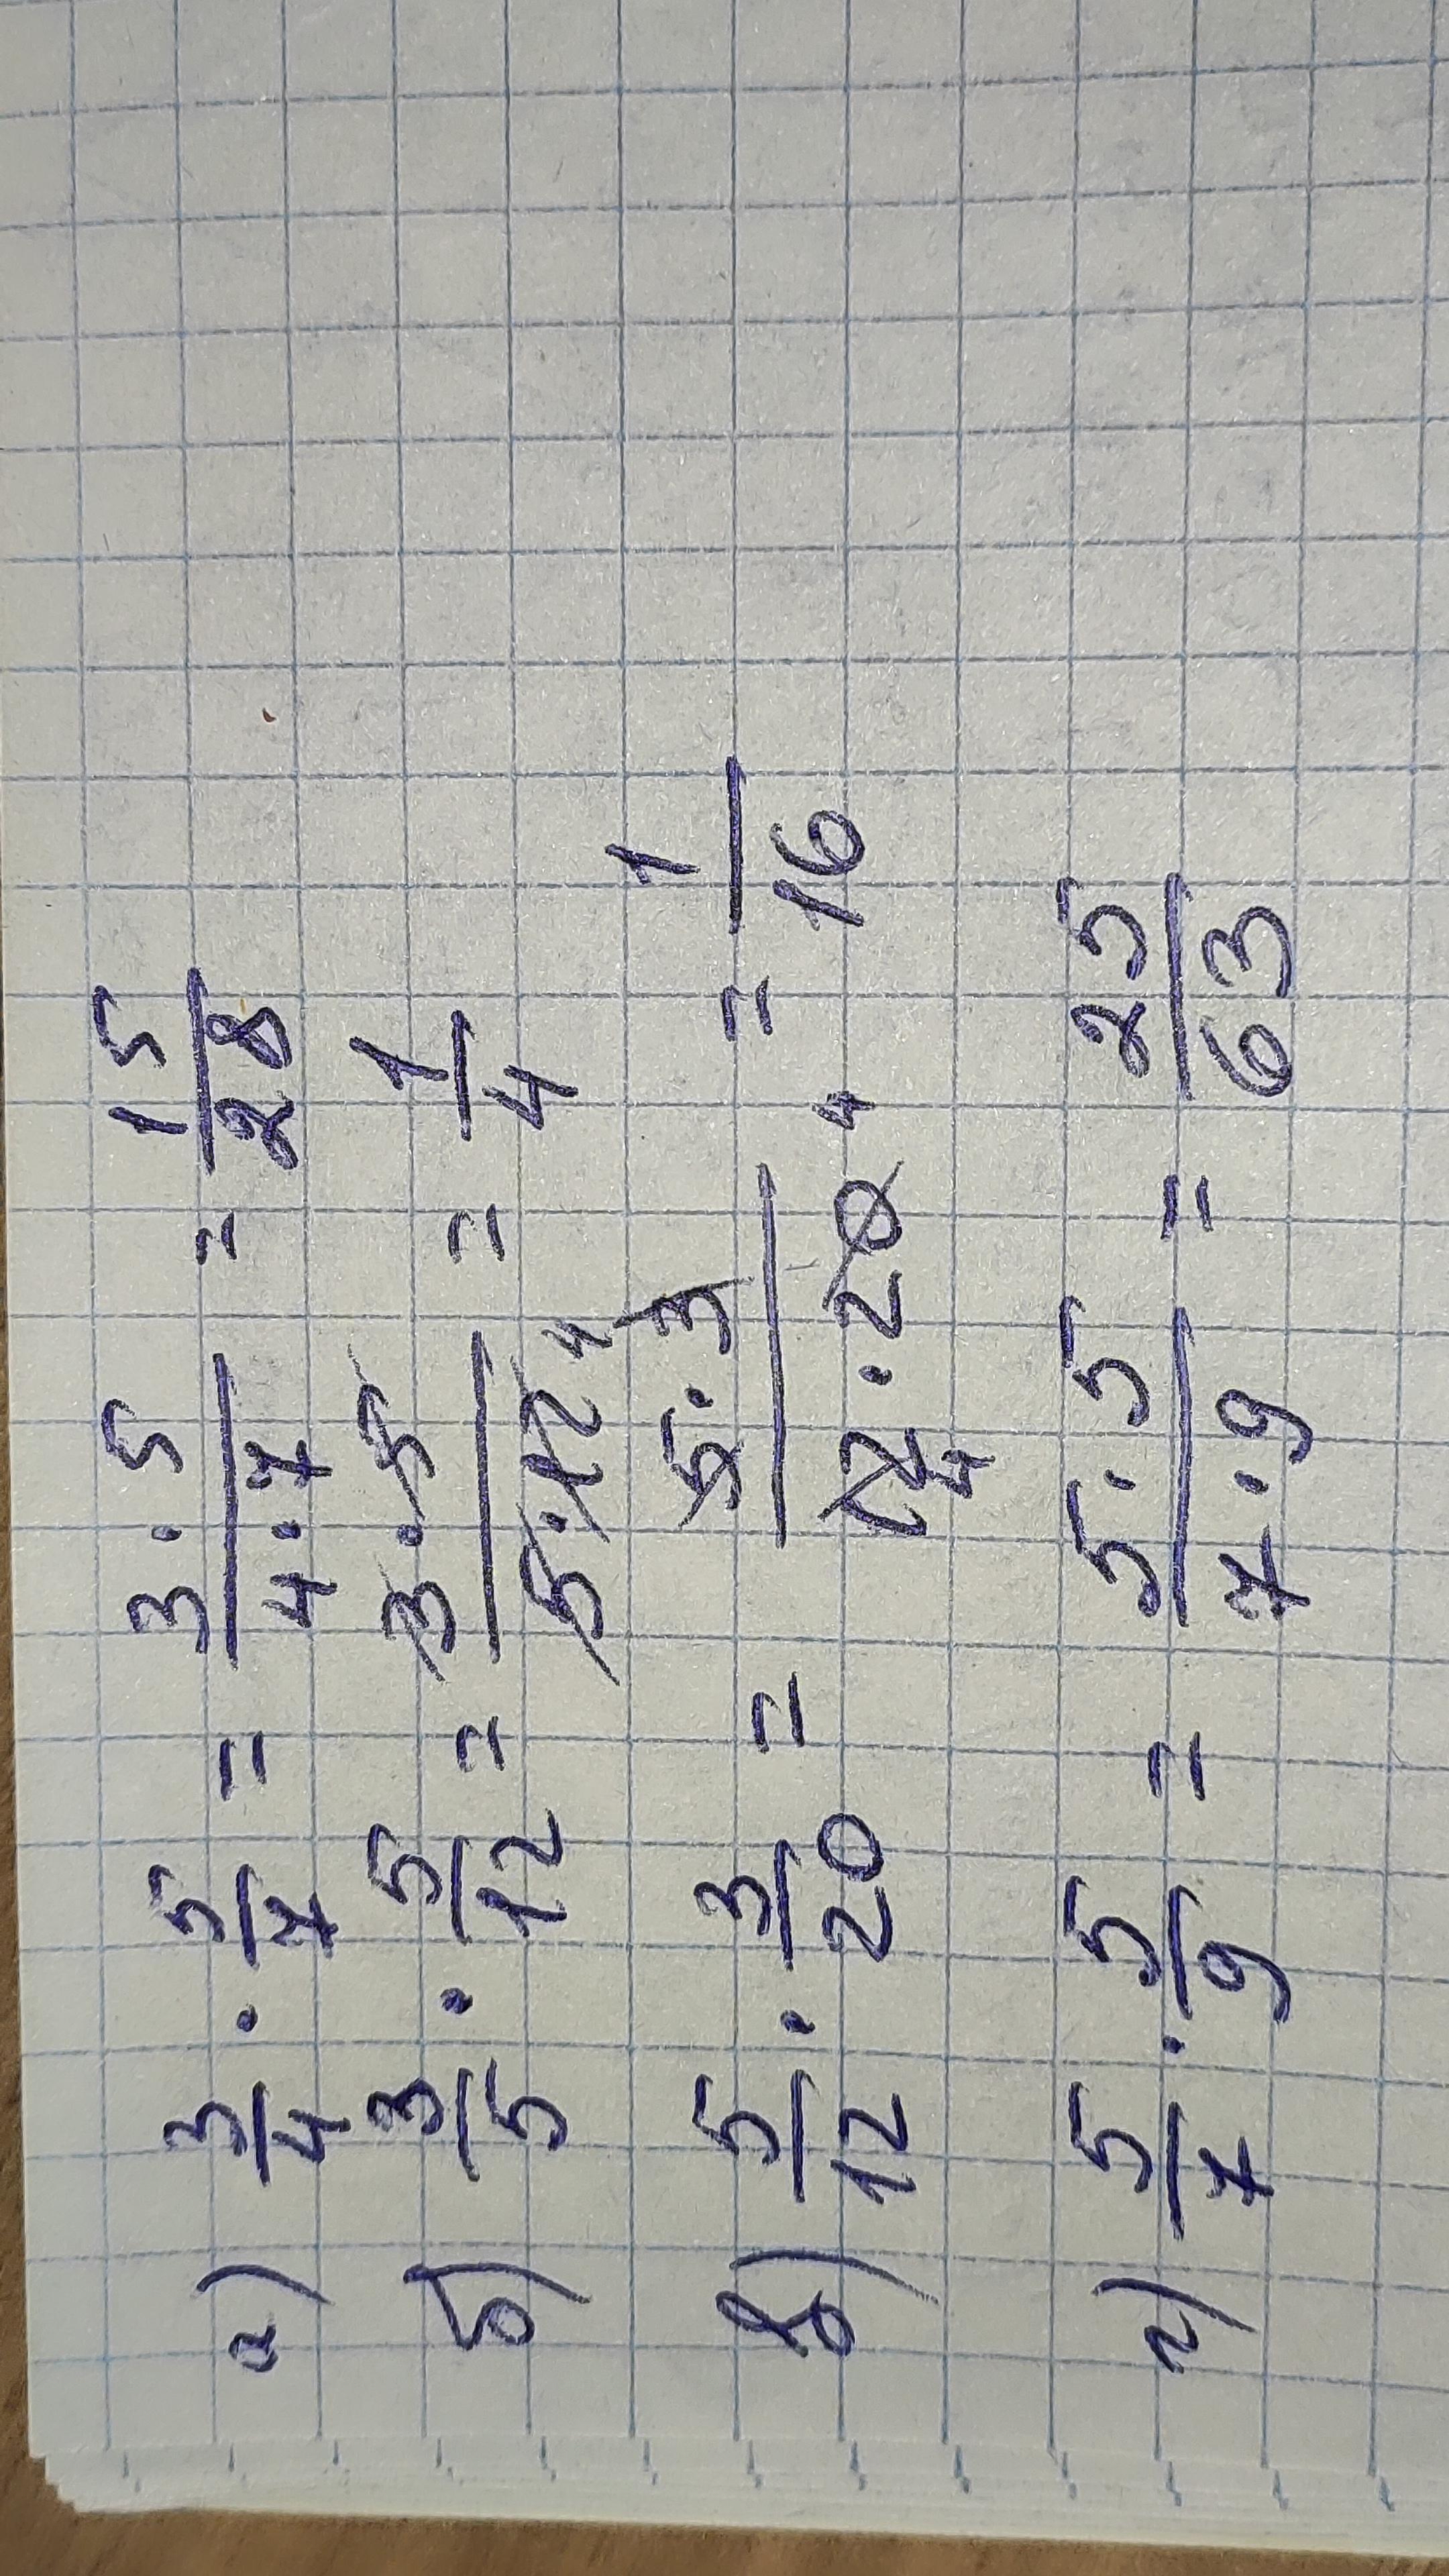 а) 3/4 · 5/7 = 3·5/4·7 = 15/28
б) 3/5 · 5/12 = 3·5/5·12 4 = 1/4
в) 5/12 · 3/20 = 5·3/12·20 4 4 = 1/16
г) 5/7 · 5/9 = 5·5/7·9 = 25/63